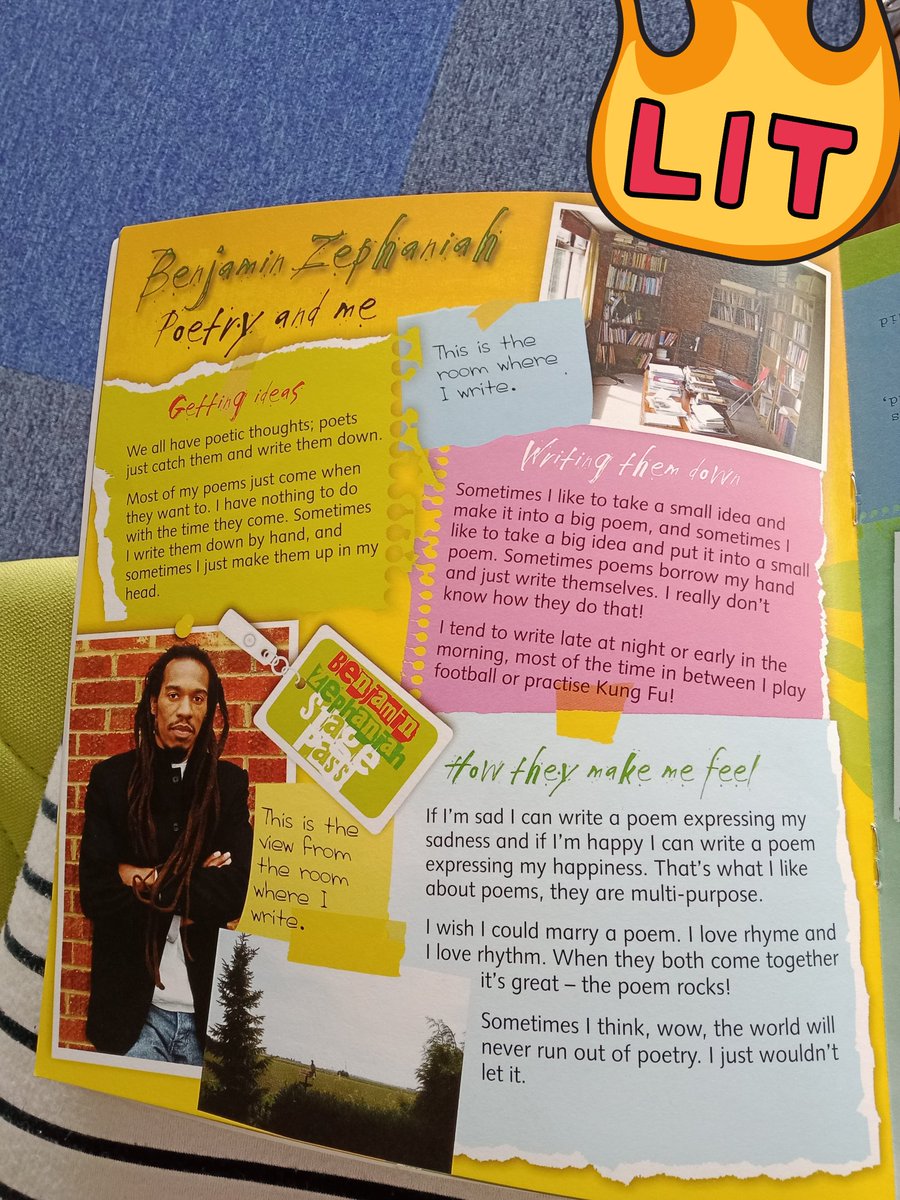 LIT
Benjamin Zephaniah
Poetry and me
Getting ideas
We all have poetic thoughts; poets
just catch them and write them down.
Most of my poems just come when
they want to. I have nothing to do
with the time they come. Sometimes
I write them down by hand, and
sometimes I just make them up in my
head.
This is the
room where
I write.
Writing them down
Sometimes I like to take a small idea and
make it into a big poem, and sometimes I
like to take a big idea and put it into a small
poem. Sometimes poems borrow my hand
and just write themselves. I really don't
know how they do that!
I tend to write late at night or early in the
morning, most of the time in between I play
football or practise Kung Fu!
Benjamin
Zephaniah
Stage
Pass
This is the
view from
the room
where I
write.
How they make me feel
If I'm sad I can write a poem expressing my
sadness and if I'm happy I can write a poem
expressing my happiness. That's what I like
about poems, they are multi-purpose.
I wish I could marry a poem. I love rhyme and
I love rhythm. When they both come together
it's great – the poem rocks!
Sometimes I think, wow, the world will
never run out of poetry. I just wouldn't
let it.